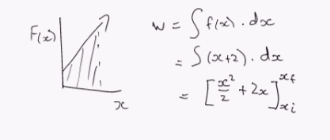 F(x)
x
w = ∫ f(x) . dx
= ∫ (x+2) . dx
= [x²/2 + 2x]^xf_xi